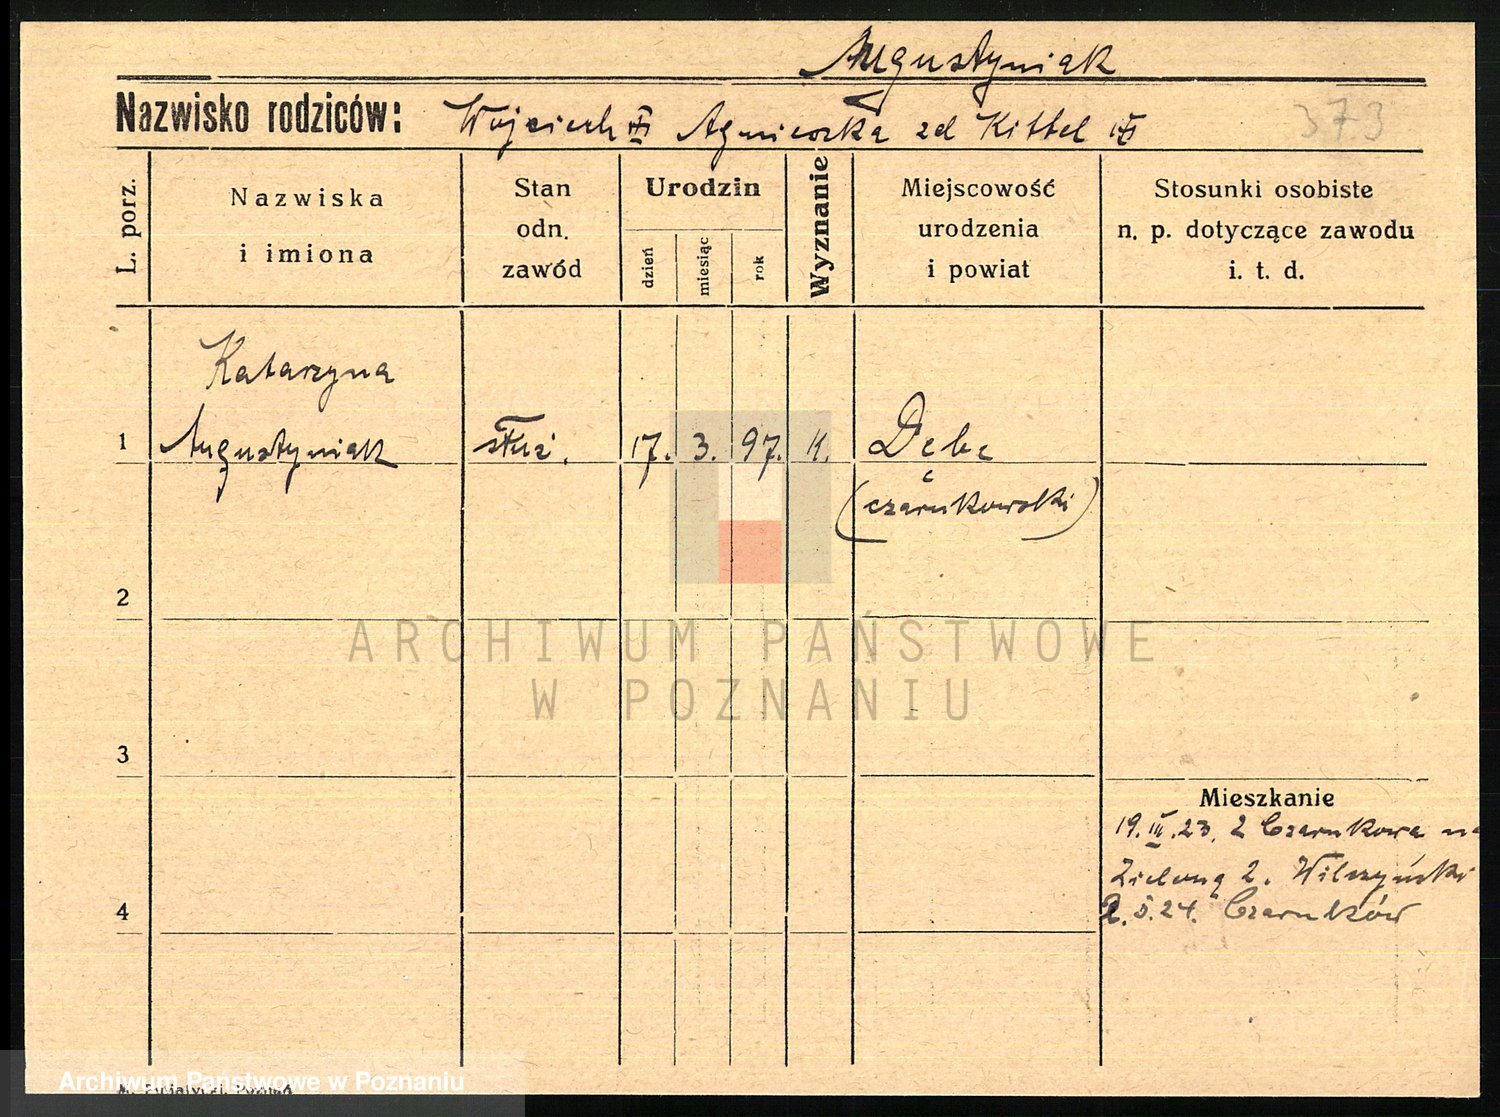 Augustyniak
Nazwisko rodziców: Wojciech Agnieszka zd Kittel 373
L. porz.
Nazwiska i imiona
Stan odn. zawód
Urodzin
dzień
miesiąc
rok
Wyznanie
Miejscowość urodzenia i powiat
Stosunki osobiste n. p. dotyczące zawodu i. t. d.
Katarzyna
1 Augustyniak służ. 17. 3. 97. K. Dębe
(czarnkowski)
2
ARCHIWUM PAŃSTWOWE
W POZNANIU
3
Mieszkanie
19. III. 23. z Czarnkowa na
Zieloną 2. Wilczyński
4
2. 5. 24. Czarnków
Archiwum Państwowe w Poznaniu